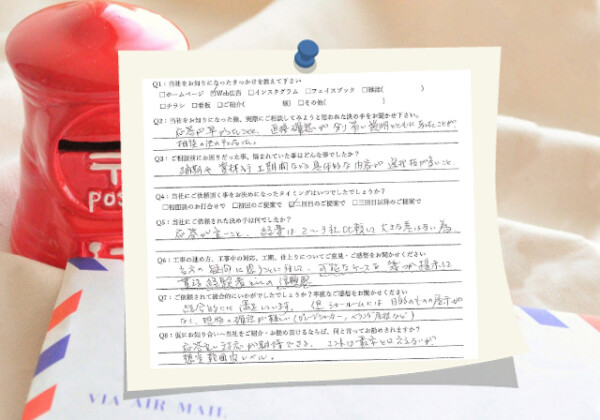 Q1：当社をお知りになったきっかけを教えて下さい
□ホームページ ☑Web広告 □インスタグラム □フェイスブック □雑誌( )
□チラシ □看板 □ご紹介( 様) □その他( )
Q2：当社をお知りになった後、実際にご相談してみようと思われた決め手をお聞かせ下さい。
応答が早かったこと、
相談の決め手となった。
Q3：ご相談前にお困りだった事、悩まれていた事はどんな事でしたか？
納期や 工期間など 具体的な内容が 選択肢が多いこと
Q4：当社にご依頼頂く事をお決めになったタイミングはいつでしたでしょうか？
□初回のお打合せで □初回のご提案で ☑二回目のご提案で □三回目以降のご提案で
Q5：当社にご依頼された決め手は何でしたか？
応答が早いこと、 2〜3社比較し 大きな差はない為
Q6：工事の進め方、工事中の対応、工期、仕上りについてご意見・ご感想をお聞かせください
当方の疑問に 対して、可能なケースを 提示して
Q7：ご依頼されて総合的にいかがでしたでしょうか？率直なご感想をお聞かせください
総合的には 満足しています。 但 ショールームには 目的のものの展示が
なく、現物の確認が難しい
Q8：仮にお知り合いへ当社をご紹介・お勧め頂けるならば、何と言ってお勧めされますか？
応答 対応が期待できる。コストは最安とは言えないが
想定範囲内レベル。
POS
VIA AIR MAIL